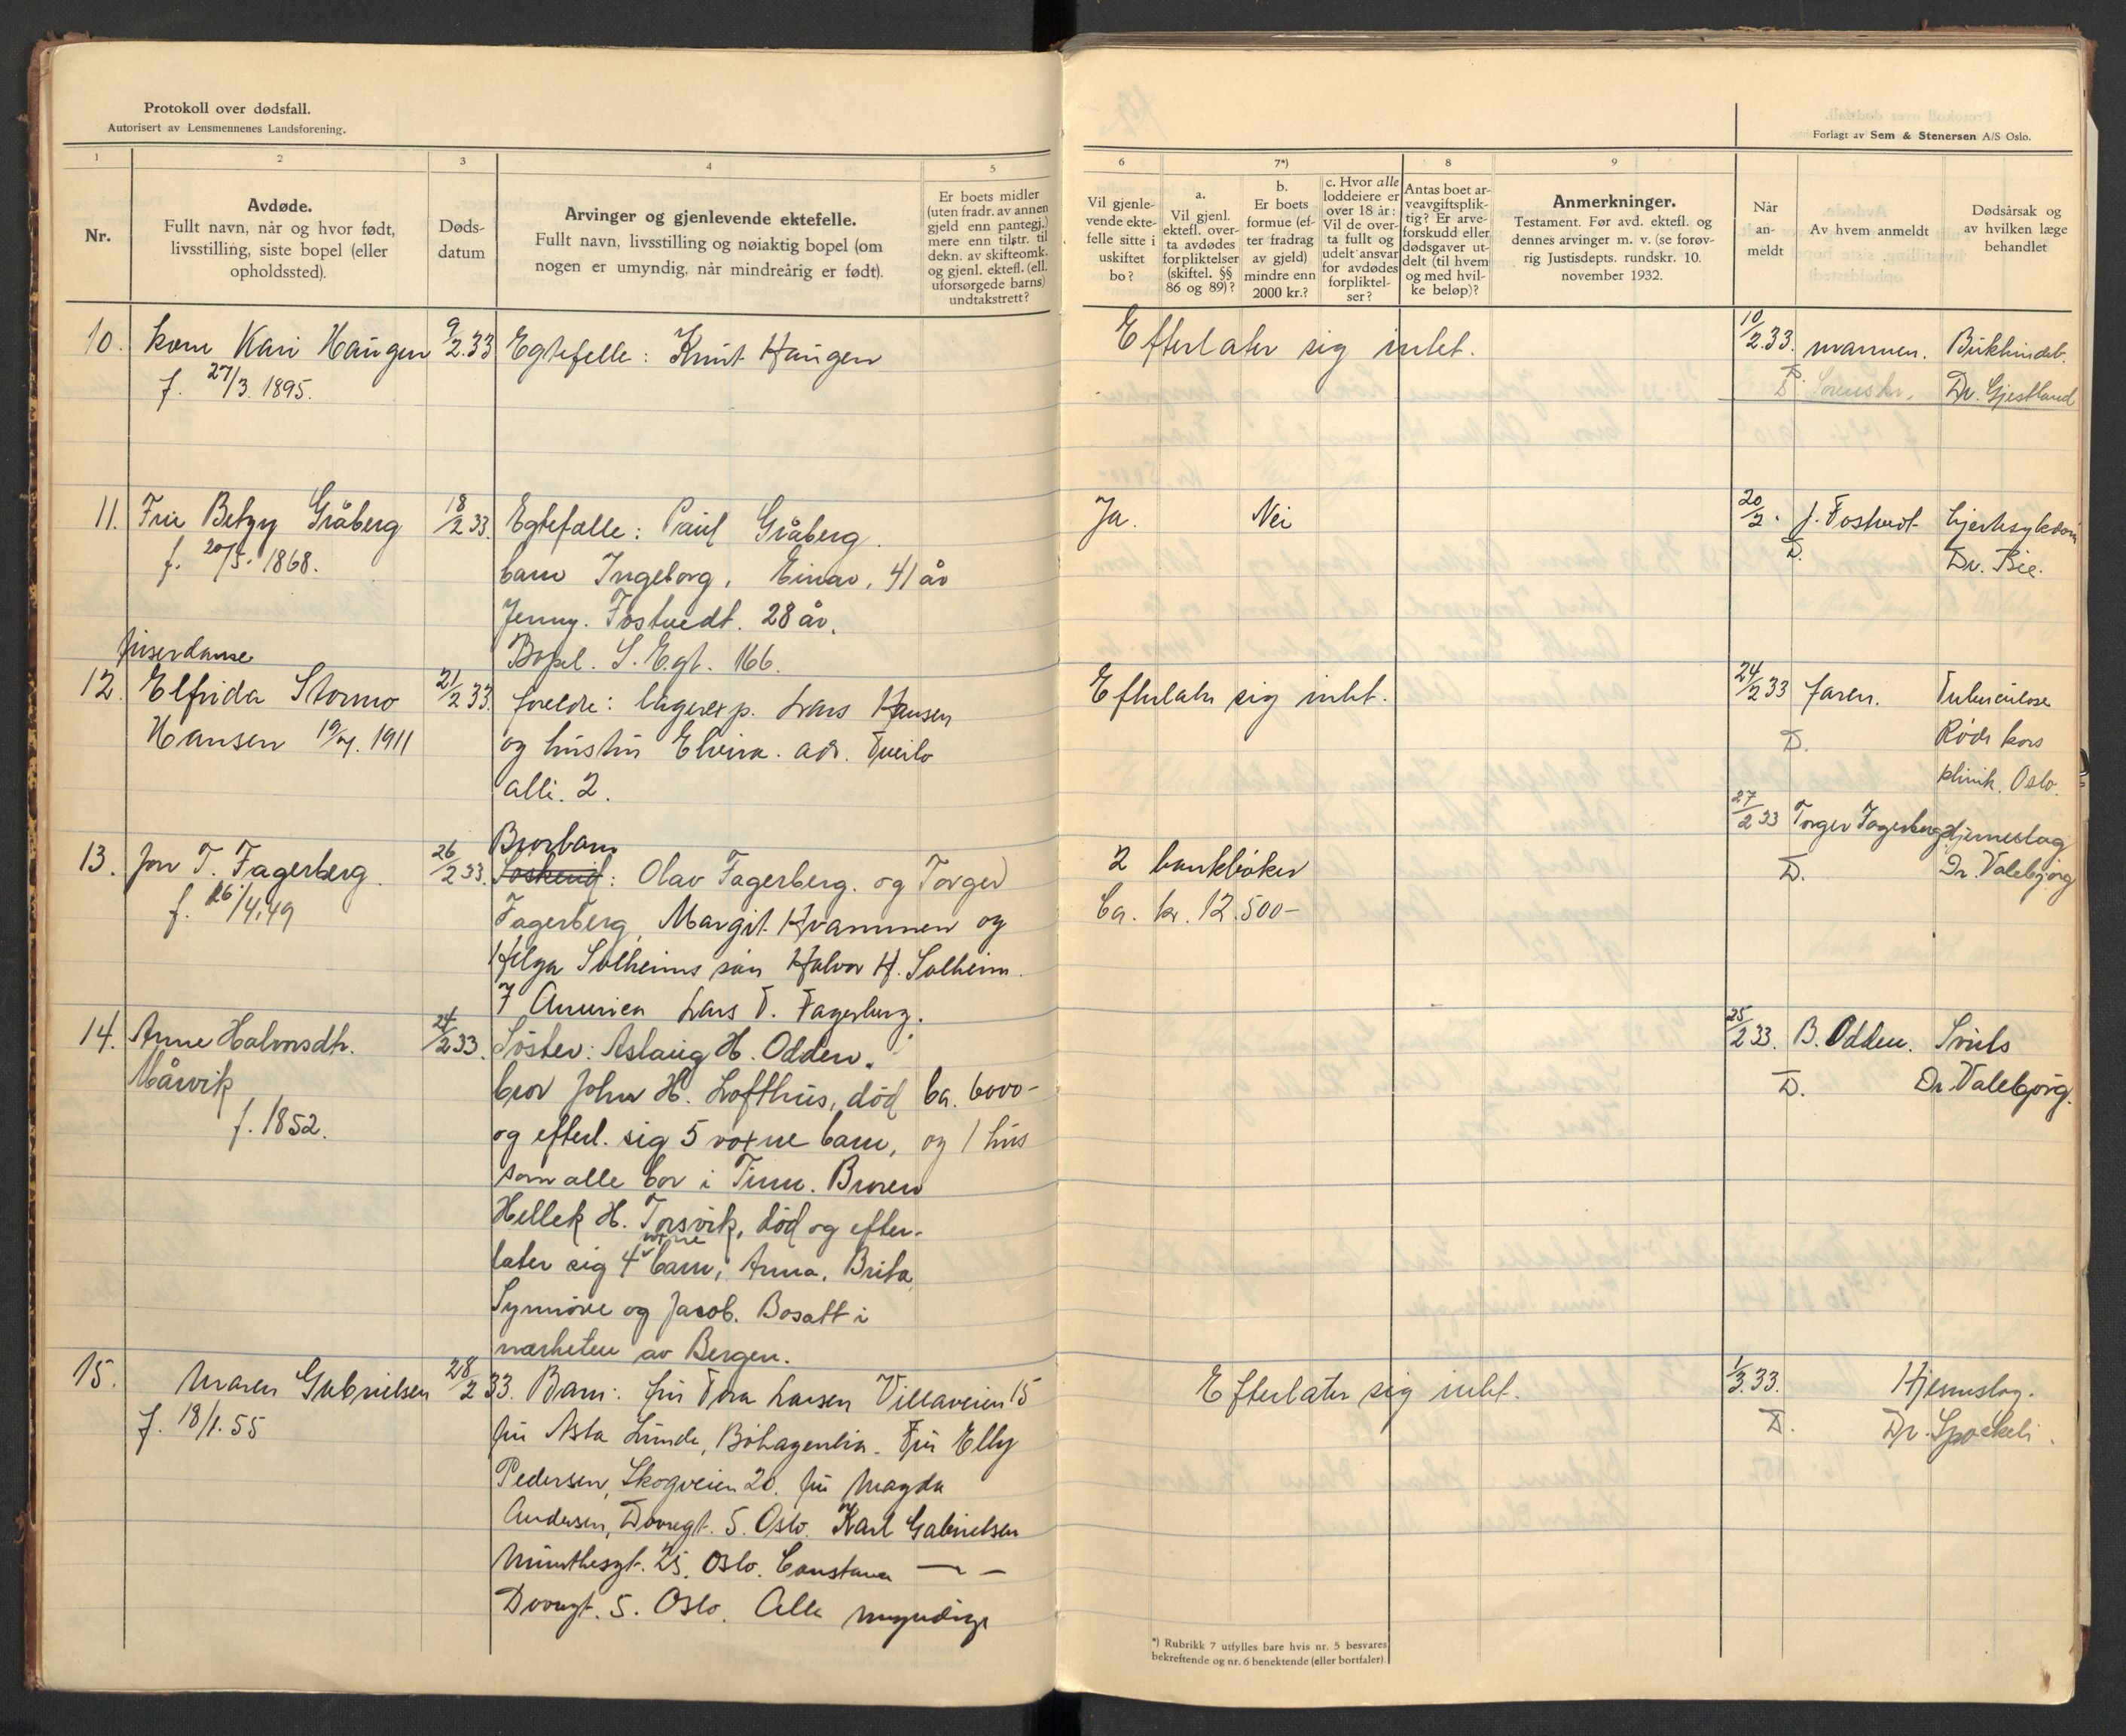 Protokoll over dødsfall.
Autorisert av Lensmennenes Landsforening.
1
2
3
4
5
Nr.
Avdøde.
Fullt navn, når og hvor født,
livsstilling, siste bopel (eller
opholdssted).
Døds-
datum
Arvinger og gjenlevende ektefelle.
Fullt navn, livsstilling og nøiaktig bopel (om
nogen er umyndig, når mindreårig er født).
Er boets midler
(uten fradr. av annen
gjeld enn pantegj.)
mere enn tilstr. til
dekn. av skifteomk.
og gjenl. ektefl. (ell.
uforsørgede barns)
undtakstrett?
10. kone Kari Haugen 9/2.33 Egtefelle: Knut Haugen
f. 27/3. 1895.
11. Frue Betzy Gråberg 18/2 33. Egtefalle: Paul Gråberg.
f. 20/5. 1868.
barn Ingeborg, Einar, 41 år
Jenny. Fostvedt. 28 år.
Bopel. S. E.gt. 166.
friserdame
12. Elfrida Stormo 21/2 33. foreldre: lagerexp. Lars Hansen
Hansen 1911 og hustru Elvira. adr. Tveito
alle. 2.
Brorbarn
13. Jon T. Fagerberg 26/2 33. Søskend: Olav Fagerberg. og Torger
f. 26/4.49
Fagerberg, Margit Kvammen og
Helga Solheims søn Halvor H. Solheim.
I Amerika Lars T. Fagerberg.
14. Anne Halvorsdtr. 24/2 33. Søster: Aslaug H. Odden.
Mårvik bror John H. Lofthus, død ca. 6000-
f. 1852. og efterl. sig 5 voxne barn, og 1 hus
som alle bor i Tinn. Broren
Hellek H. Torsvik, død og efter-
voxne
later sig 4 barn, Anna, Brita,
Synnöve og Jacob. Bosatt i
nærheten av Bergen.
15. Maren Gabrielsen 28/2 33. Barn: fru Tora Larsen Villaveien 15
f. 18/1. 55 fru Asta Lunde, Bøhagenlia. Fru Elly
Pedersen, Skogveien 20. fru Magda
Andersen, Dovregt. 5. Oslo. Karl Gabrielsen
Munthesgt. 25. Oslo. Constance — –
Dovregt. 5. Oslo. Alle myndige
Forlagt av Sem & Stenersen A/S Oslo.
6
7*)
8
9
Vil gjenle-
vende ekte-
felle sitte i
uskiftet
bo?
a.
Vil gjenl.
ektefl. over-
ta avdødes
forpliktelser
(skiftel. §§
86 og 89)?
b.
Er boets
formue (ef-
ter fradrag
av gjeld)
mindre enn
2000 kr.?
c. Hvor alle
loddeiere er
over 18 år:
Vil de over-
ta fullt og
udelt ansvar
for avdødes
forpliktel-
ser?
Antas boet ar-
veavgiftsplik-
tig? Er arve-
forskudd eller
dødsgaver ut-
delt (til hvem
og med hvil-
ke beløp)?
Anmerkninger.
Testament. Før avd. ektefl. og
dennes arvinger m. v. (se forøv-
rig Justisdepts. rundskr. 10.
november 1932.
Når
an-
meldt
Av hvem anmeldt
Dødsårsak og
av hvilken læge
behandlet
Efterlater sig intet. 10/2.33. mannen. Bukhindeb.
D. Sorenskr. Dr. Gjestland
Ja. Nei 20/2. J. Fostvedt hjertesykdom
D. Dr. Bie.
Efterlater sig intet. 24/2 33 faren. Tuberculose
D. Røde kors
klinik. Oslo.
27/2 33 Torger Fagerberg Hjerneslag
2 bankbøker D. Dr. Valebjørg
Ca. kr. 12.500-
25/2 33. B. Odden. Svuls
D. Dr. Valebjørg.
Efterlater sig intet. 1/3.33. Hjerneslag.
D. Dr. Spockeli.
*) Rubrikk 7 utfylles bare hvis nr. 5 besvares
bekreftende og nr. 6 benektende (eller bortfaler)